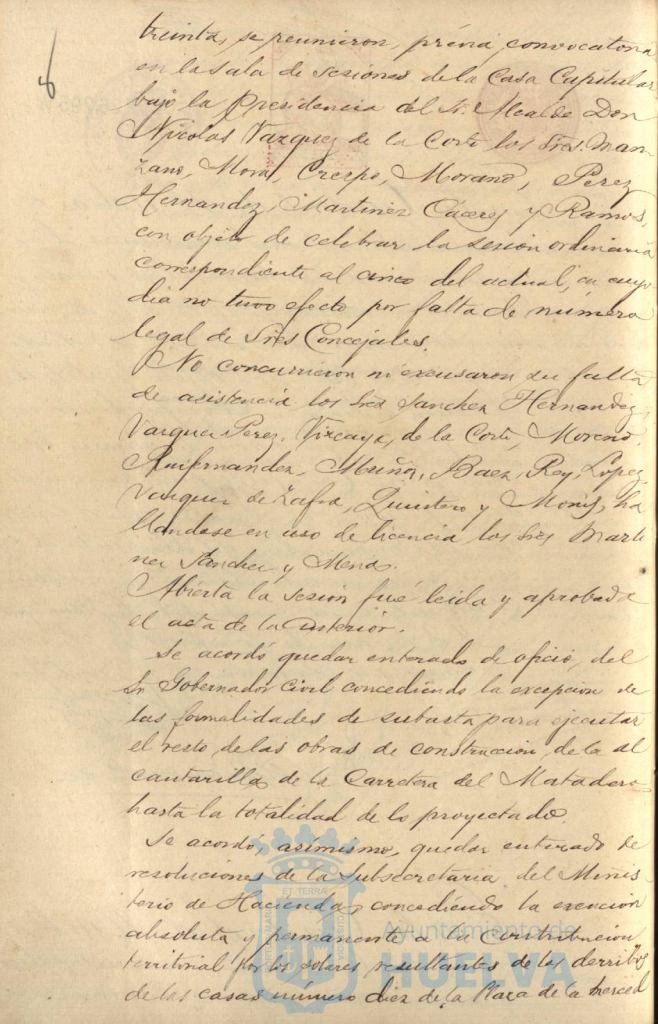 treinta, se reunieron, prévia convocatoria
en la Sala de Sesiones de la Casa Capitular
bajo la Presidencia del Sr. Alcalde Don
Nicolas Vazquez de la Corte los Sres. Man-
zano, Mora, Crespo, Morano, Perez
Hernandez, Martinez Cáceres y Ramos,
con objeto de celebrar la sesion ordinaria
correspondiente al cinco del actual, en cuyo
dia no tuvo efecto por falta de número
legal de Sres Concejales.
No concurrieron ni excusaron su falta
de asistencia los Sres Sanchez Hernandez,
Vazquez Perez, Vizcaya, de la Corte, Moreno,
Ruifernandez, Muñoz, Baez, Rey, Lopez,
Vazquez de Zafra, Quintero y Monís, ha
llandose en uso de licencia los Sres Marti
nez Sanchez y Mena.
Abierta la sesion fué leida y aprobada
el acta de la anterior.
Se acordó quedar enterado de oficio, del
Sr. Gobernador Civil concediendo la excepcion de
las formalidades de subasta para ejecutar
el resto de las obras de construccion de la al
cantarilla de la Carretera del Matadero
hasta la totalidad de lo proyectado.
Se acordó, asímismo, quedar enterado de
resoluciones de la Subsecretaria del Minis
terio de Hacienda, concediendo la exencion
absoluta y permanente a la Contribucion
territorial por los solares resultantes de los derribos
de las casas número diez de la Plaza de la Merced
Ayuntamiento de
HUELVA